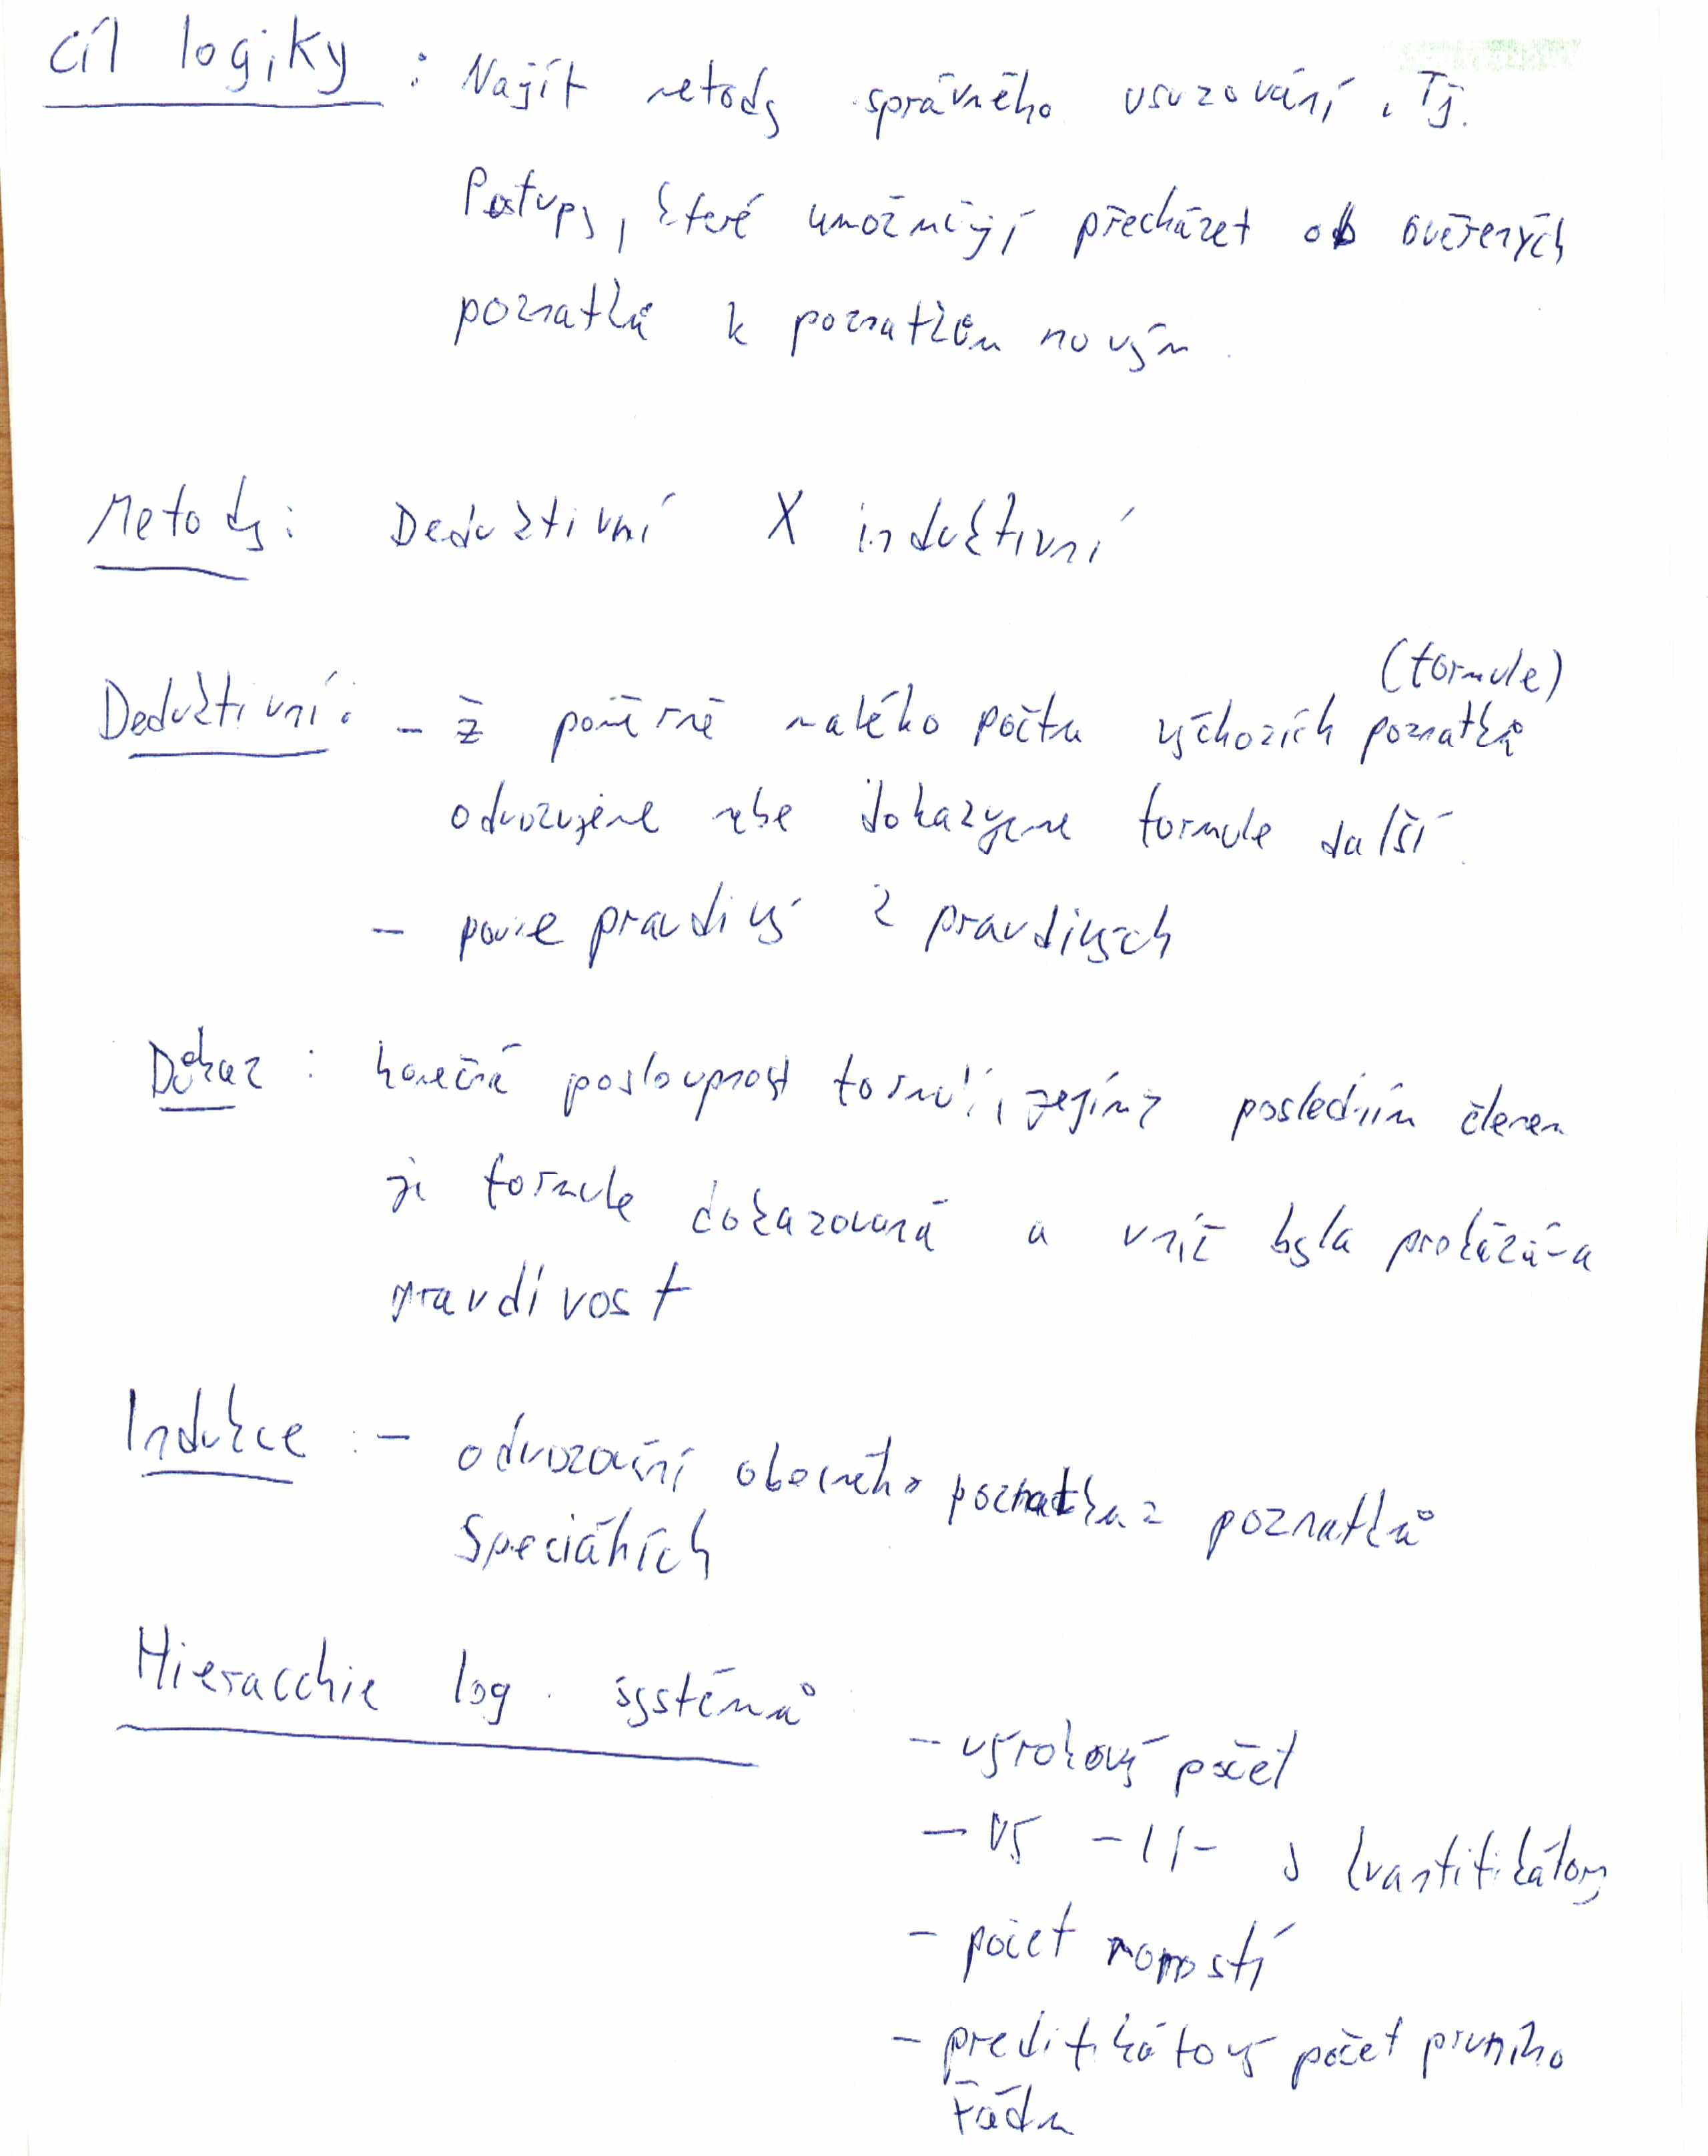 cíl logiky : Najít metody správného usuzování. Tj.
Postupy, které umožňují přecházet od ověřených
poznatků k poznatkům novým.
Metody: Deduktivní X induktivní
(formule)
Deduktivní: - z poměrně malého počtu výchozích poznatků
odvozujeme nebo dokazujeme formule další.
- pouze pravdivý z pravdivých
Důkaz : konečná posloupnost formulí, jejímž posledním členem
je formule dokazovaná a v níž byla prokázána
pravdivost
Indukce : - odvozování obecného poznatku z poznatků
speciálních
Hierarchie log. systémů
- výrokový počet
- vý -11- s kvantifikátory
- počet rovností
- predikátový počet prvního
řádu